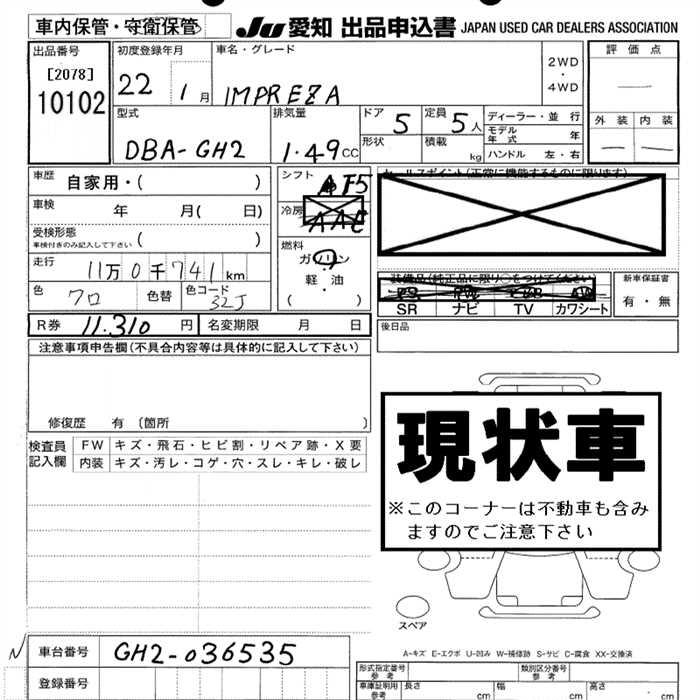 車内保管・守衛保管
JU 愛知 出品申込書 JAPAN USED CAR DEALERS ASSOCIATION
出品番号
[2078]
10102
初度登録年月
22 1月
車名・グレード
IMPREZA
2WD
・
4WD
評価点
—
外装 内装
— —
型式
DBA-GH2
排気量
1.49cc
ドア
5
定員
5人
形状
積載
kg
ディーラー・並行
モデル年式 年
ハンドル 左・右
車歴 自家用・( )
車検 年 月( 日)
受検形態
車検付きのみ記入して下さい ( )
走行 11万0千741km
色 クロ 色替 色コード 32J
シフト
冷房 AAC
燃料
ガソリン
・
軽油
( )
セールスポイント(正常に機能するものに限ります)
装備品(純正品に限り○をつけてください)
SR ナビ TV カワシート
新車保証書
有・無
R券 11.310 円 名変期限 月 日
後日品
注意事項申告欄(不具合内容等は具体的に記入して下さい)
修復歴 有 (箇所 )
検査員
記入欄
FW キズ・飛石・ヒビ割・リペア跡・X要
内装 キズ・汚レ・コゲ・穴・スレ・キレ・破レ
現状車
※このコーナーは不動車も含み
ますのでご注意下さい
スペア
A-キズ E-エクボ U-凹み W-補修跡 S-サビ C-腐食 XX-交換済
N
車台番号 GH2-036535
登録番号
形式指定番号
参考
類別区分番号
参考
車庫証明用
参考
長さ cm 幅 cm 高さ cm